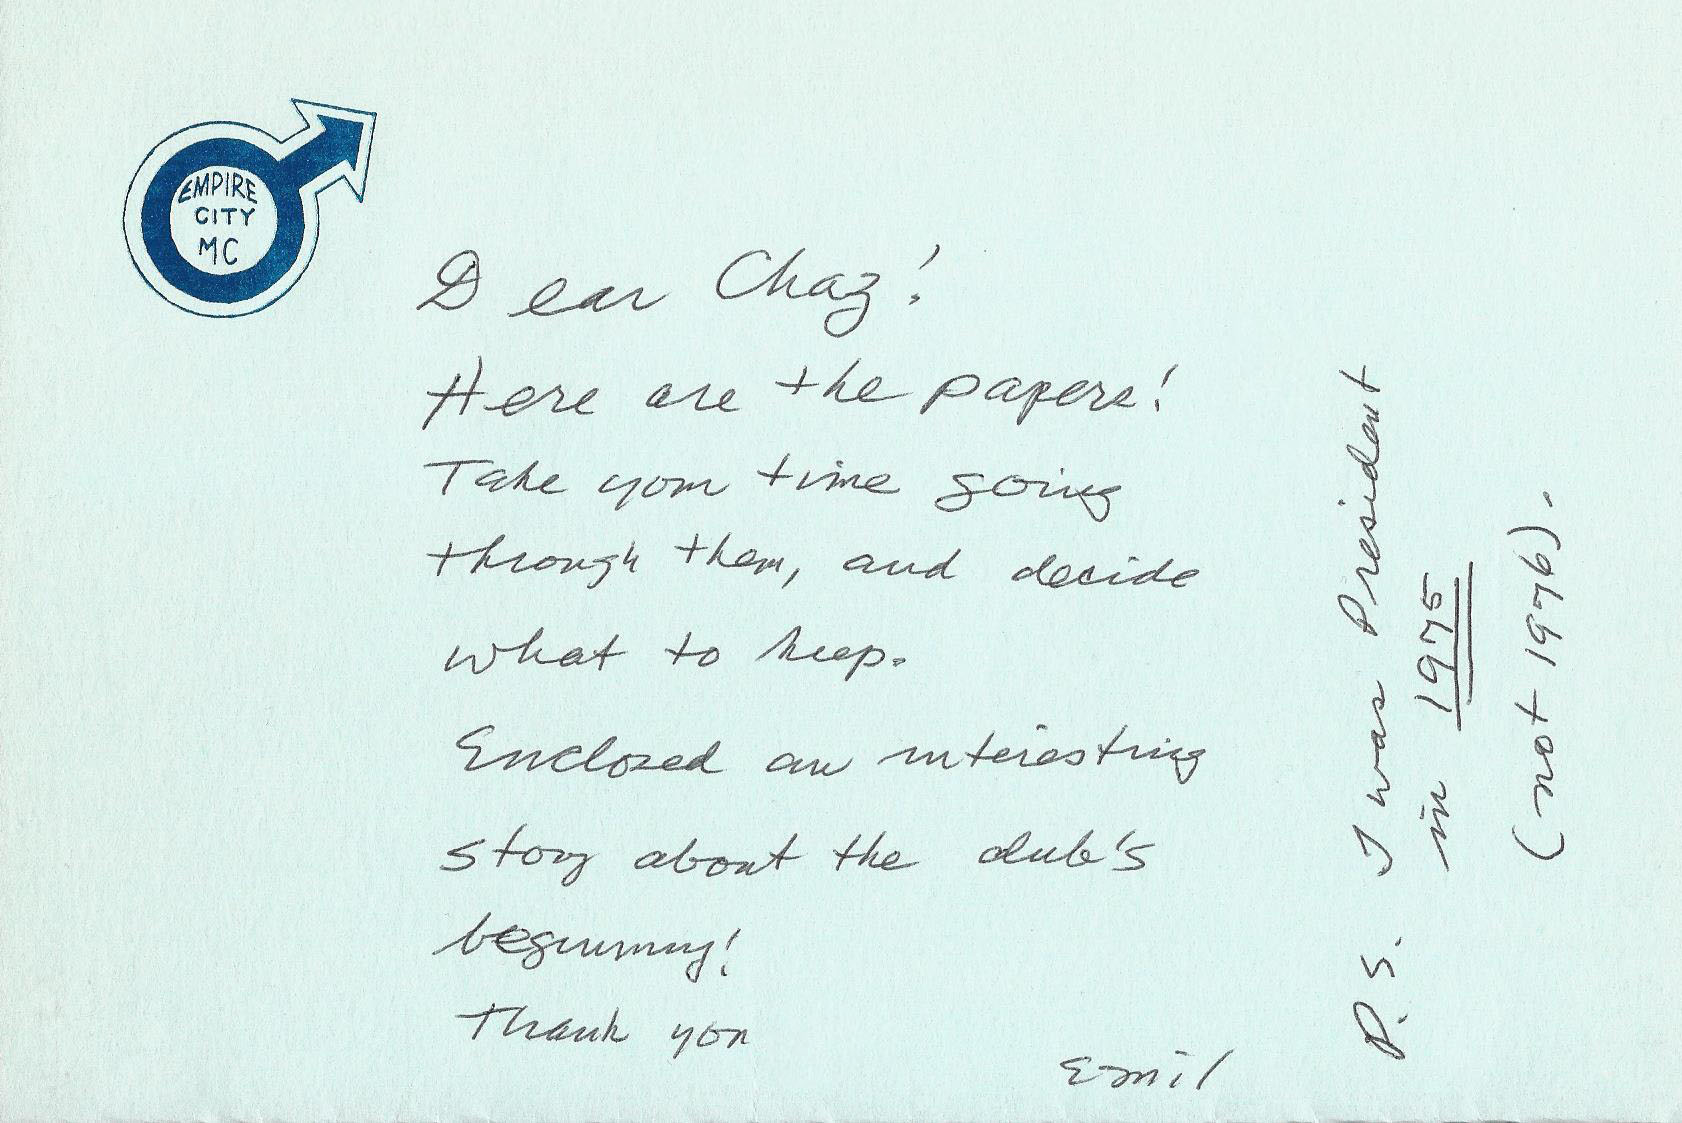 EMPIRE
CITY
MC
Dear Chaz!
Here are the papers!
Take your time going
through them, and decide
what to keep.
Enclosed an interesting
story about the club's
beginning!
Thank you
Emil
P.S. I was President
in 1975
(not 1976).